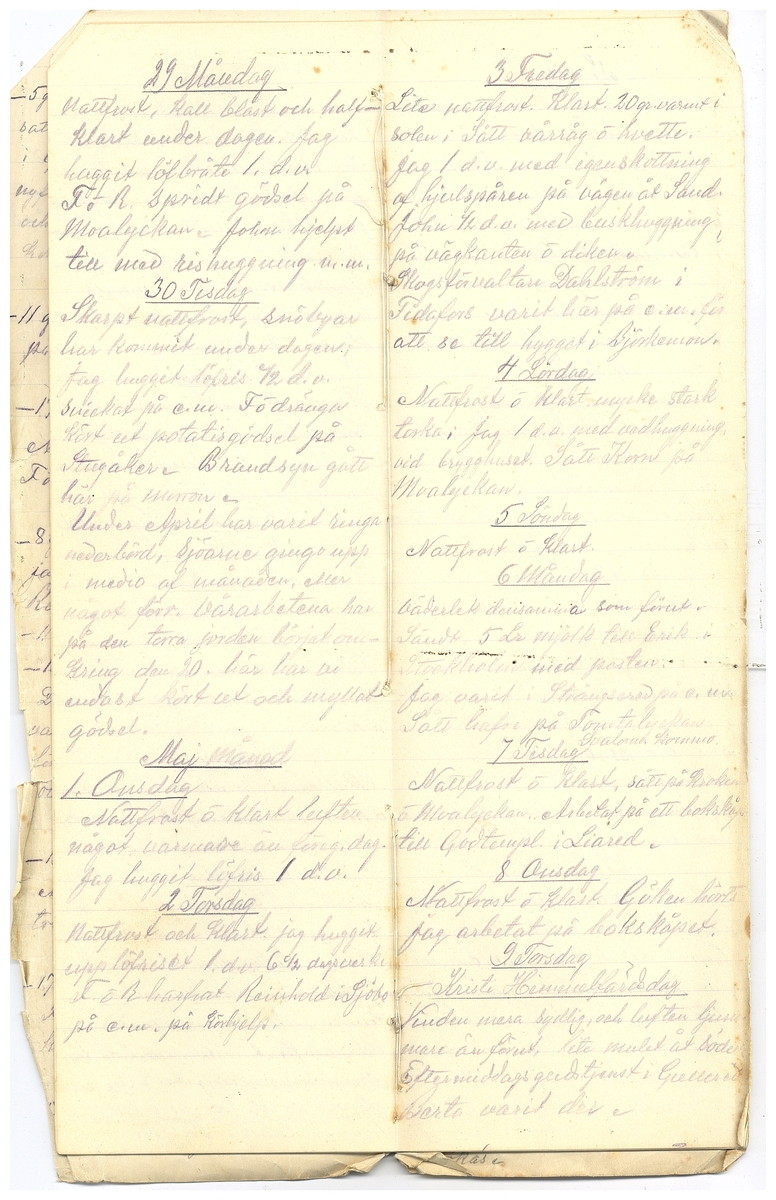 29 Måndag
Nattfrost, kall blåst och half-
klart under dagen. Jag
huggit löfbråte 1. d.v.
F. o R. spridt gödsel på
Moalyckan. John hjelpt
till med rishuggning m.m.
30 Tisdag
Skarpt nattfrost, snöbyar
har kommit under dagen.
Jag huggit löfris 1/2 d.v.
snickat på e.m. F ö drängen
kört ut potatisgödsel på
Stugåker. Brandsyn gått
här på morron.
Under April har varit ringa
nederbörd, Sjöarne gingo upp
i medio af månaden, eller
något förr. Vårarbetena har
på den torra jorden börjat om-
kring den 20. här har vi
endast kört ut och myllat
gödsel.
Maj Månad
1. Onsdag
Nattfrost ö klart luften
något varmare än föreg. dag.
Jag huggit löfris 1 d.v.
2 Torsdag
Nattfrost och klart. jag huggit
upp löfriset 1. d.v. 6 1/2 dagsverk
F. ö R harfvat. Reinhold i Sjöbo
på e.m. på körhjelp.
3 Fredag
Lite nattfrost. Klart. 20 gr. varmt i
solen. Sått vårråg ö hvette.
Jag 1 d.v. med igenskottning
af hjulspåren på vägen åt Sand.
John 1/2 d.v. med buskhuggning
på vägkanten ö diken.
Skogsförvaltare Dahlström i
Fidafors varit här på e.m. för
att se till hygget i Björkemon.
4 Lördag
Nattfrost ö klart mycke stark
torka; Jag 1 d.v. med vedhuggning
vid brygghuset. Sått Korn på
Moalyckan.
5 Söndag
Nattfrost ö klart.
6 Måndag
Väderlek densamma som förut.
Sändt 5 Lr mjölk till Erik i
Stockholm med posten.
Jag varit i Strängsered på e.m.
Sått hafre på Tomtalyckan
Svalorna kommo.
7 Tisdag
Nattfrost ö klart, sått på Kroken
ö Moalyckan. Arbetat på ett bokskåp
till Godtempl. i Liared.
8 Onsdag
Nattfrost ö klart. Göken hörts
jag arbetat på bokskåpet.
9 Torsdag
Kristi Himmelfärdsdag
Vinden mera sydlig, och luften ljum-
mare än förut, lite mulet åt Söder
Eftermiddagsgudstjenst i
Berta varit der.